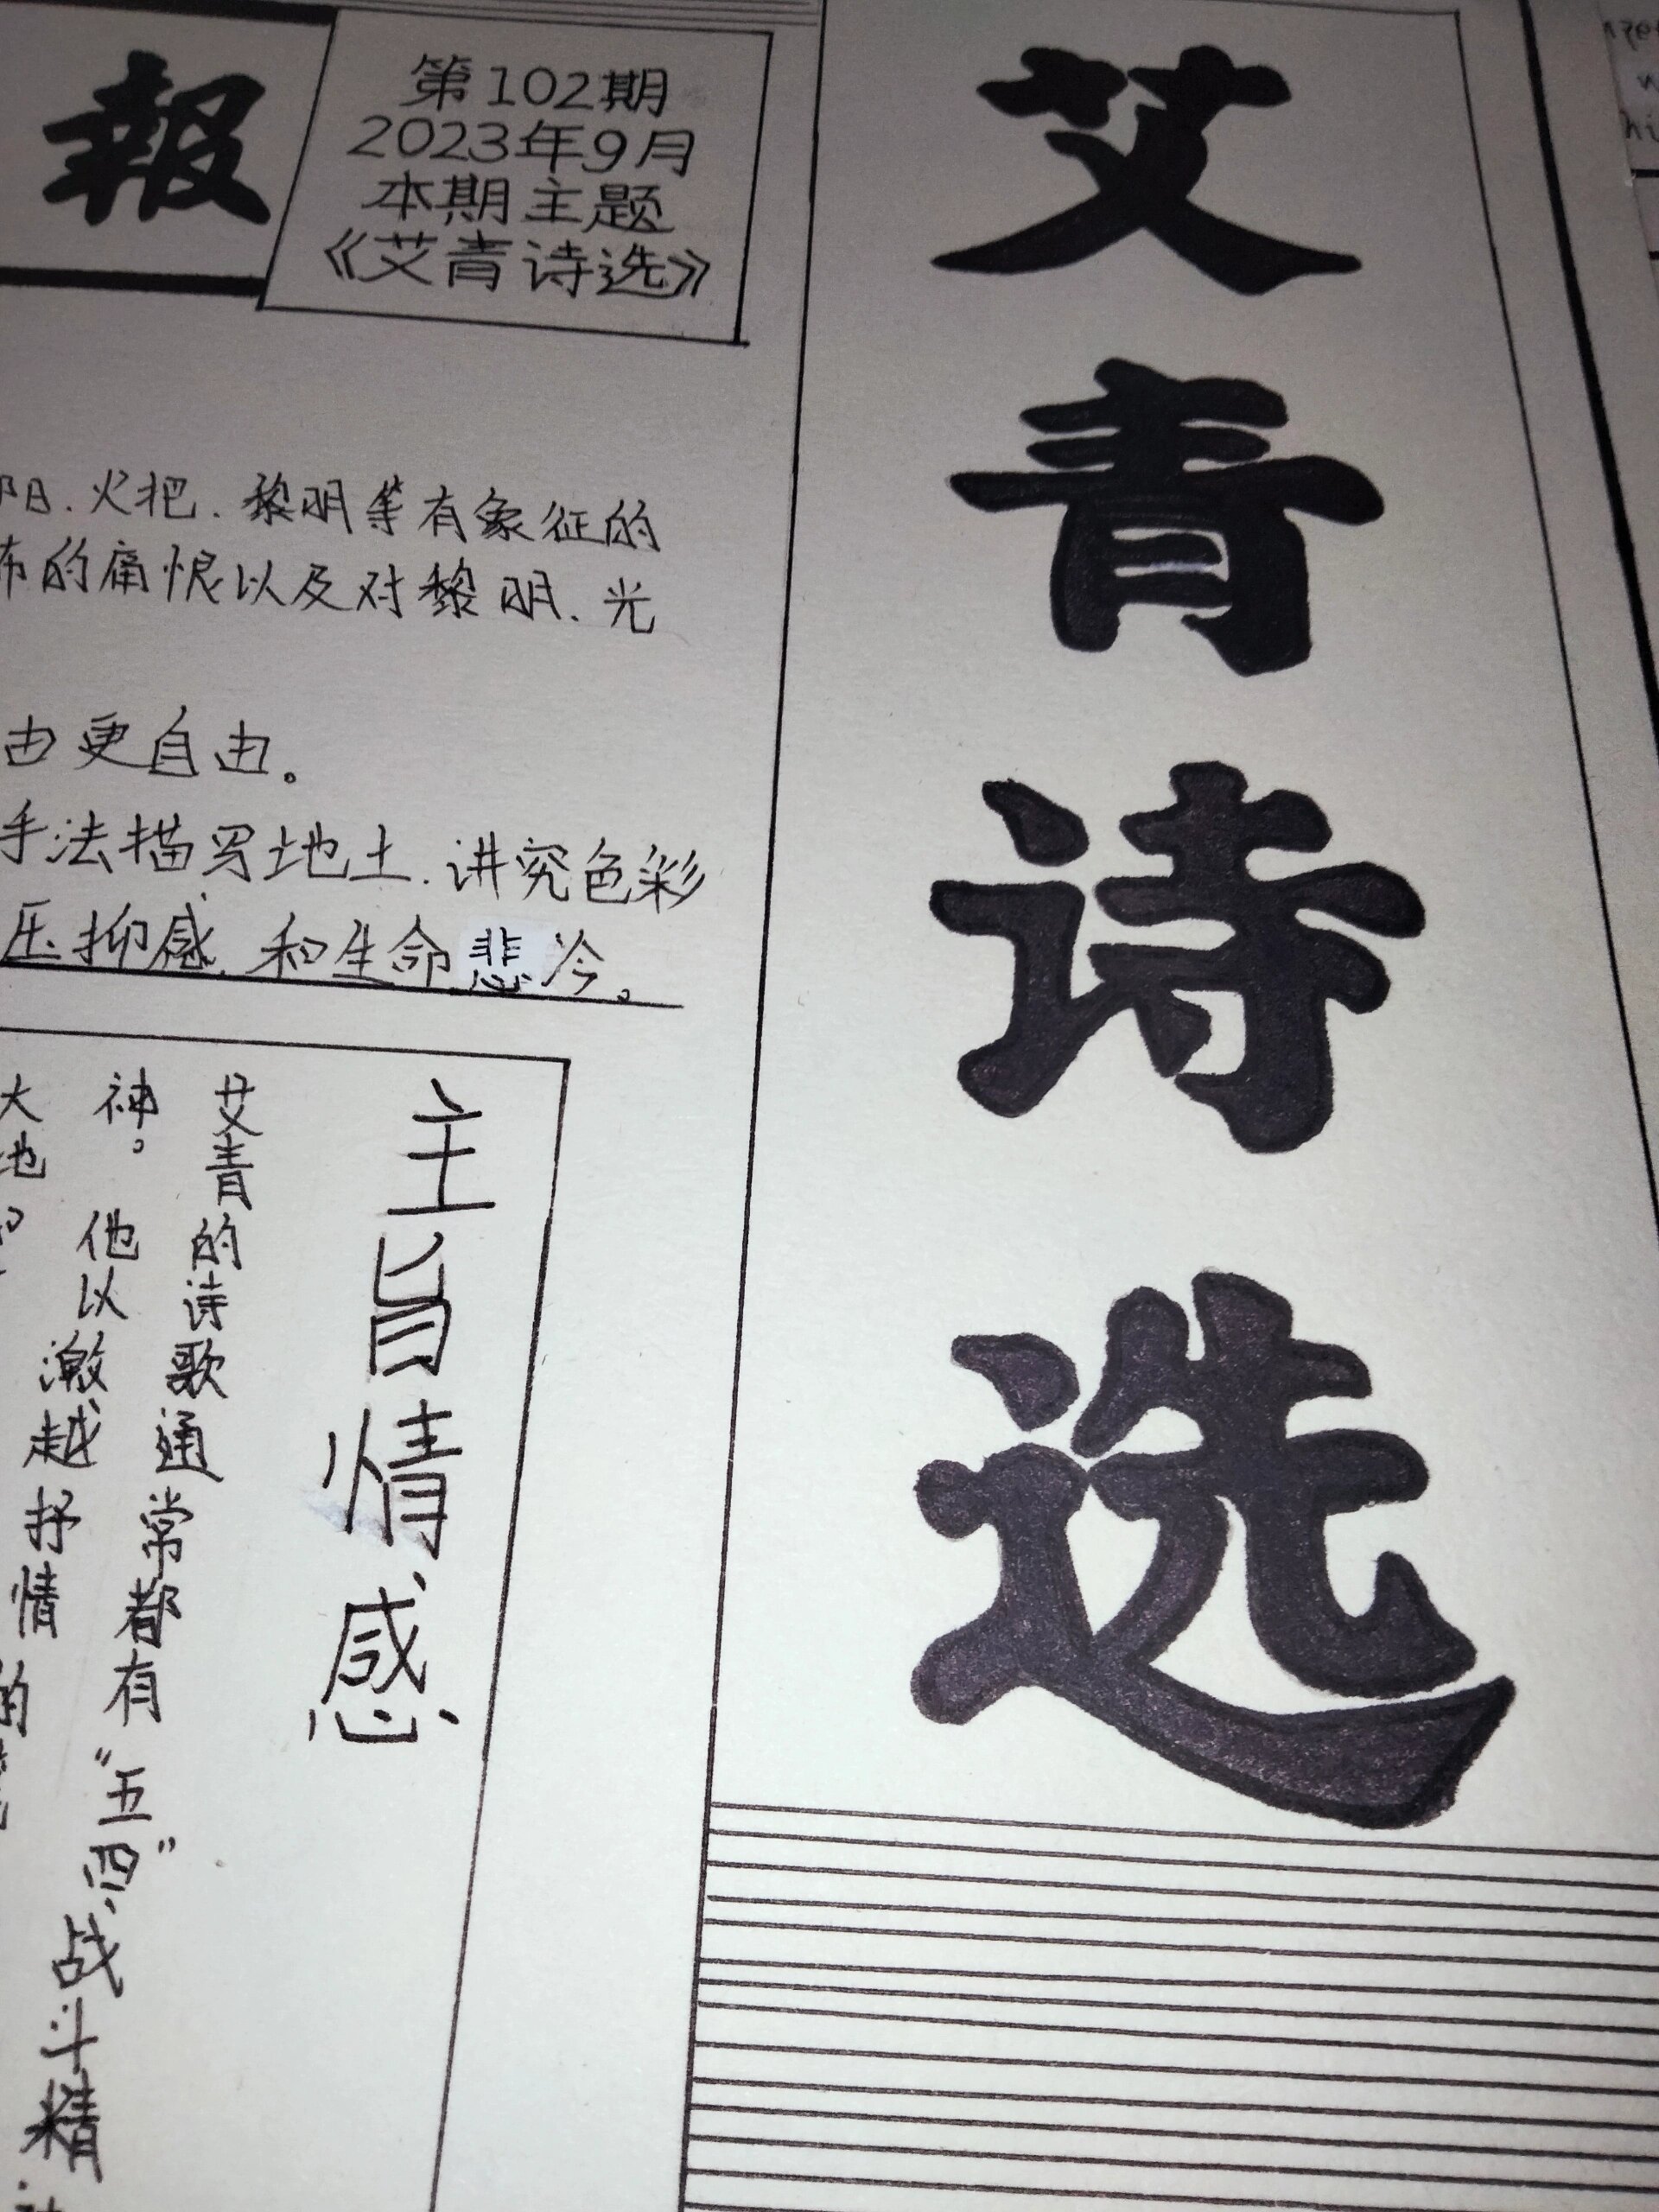 報
第102期
2023年9月
本期主题
《艾青诗选》
艾青诗选
阳.火把.黎明等有象征的
怖的痛恨以及对黎明.光
由更自由。
手法描写地土.讲究色彩
压抑感.和生命悲冷。
主旨情感
艾青的诗歌通常都有“五四”战斗精
神。他以激越抒情的
大地